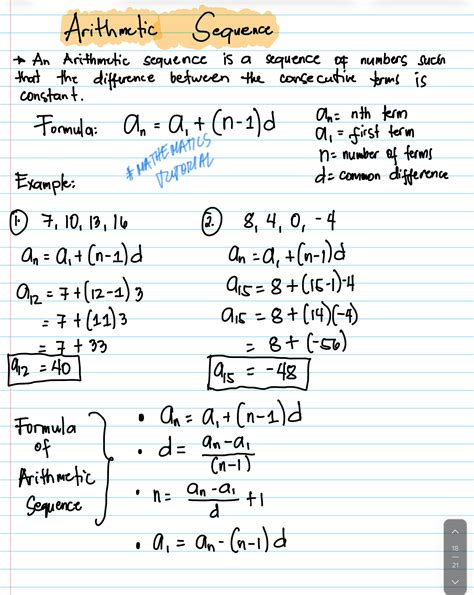 Arithmetic Sequence
→ An Arithmetic sequence is a sequence of numbers such
that the difference between the consecutive terms is
constant.
Formula: aₙ = a₁ + (n-1)d
aₙ = nth term
a₁ = first term
n = number of terms
d = common difference
# MATHEMATICS
TUTORIAL
Example:
1. 7, 10, 13, 16
aₙ = a₁ + (n-1)d
a₁₂ = 7 + (12-1) 3
= 7 + (11) 3
= 7 + 33
a₁₂ = 40
2. 8, 4, 0, -4
aₙ = a₁ + (n-1)d
a₁₅ = 8 + (15-1)-4
a₁₅ = 8 + (14)(-4)
= 8 + (-56)
a₁₅ = -48
Formula
of
Arithmetic
Sequence
• aₙ = a₁ + (n-1)d
• d = aₙ-a₁ / (n-1)
• n = aₙ-a₁ / d + 1
• a₁ = aₙ - (n-1) d
18
21